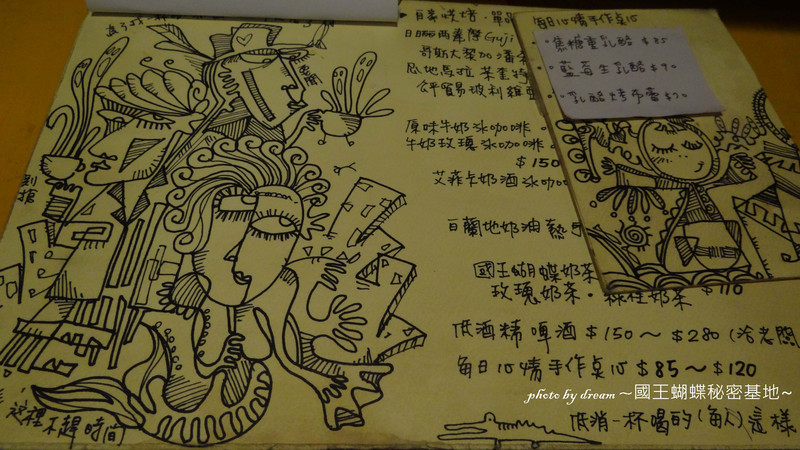 這裡不趕時間
日晒西達摩Guji
哥斯大黎加潘朵
瓜地馬拉茱奎特
伊貿易玻利維亞
原味牛奶冰咖啡
牛奶玫瑰冰咖啡
$150
艾菲卡奶酒冰咖
白蘭地奶油熱
國王蝴蝶奶茶
玫瑰奶茶・綠茶奶茶 $110
低酒精啤酒 $150～$280 (洽老闆
每日心情手作桌心 $85～$120
低消一杯喝的(每人)這樣
每日心情手作桌心
焦糖蛋乳酪 $85
藍莓生乳酪 $90
乳酪烤布蕾 $90
photo by dream ~國王蝴蝶秘密基地~